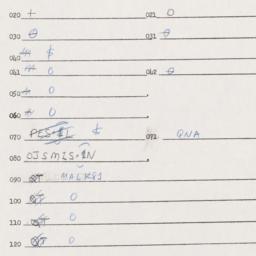 020 + 021 0
030 0 031 0
040 $
041 0 042 0
050 0
060 0
070 $ 071 QNA
080 OJSMIS-1N
090 MALK81
100 0
110 0
120 0